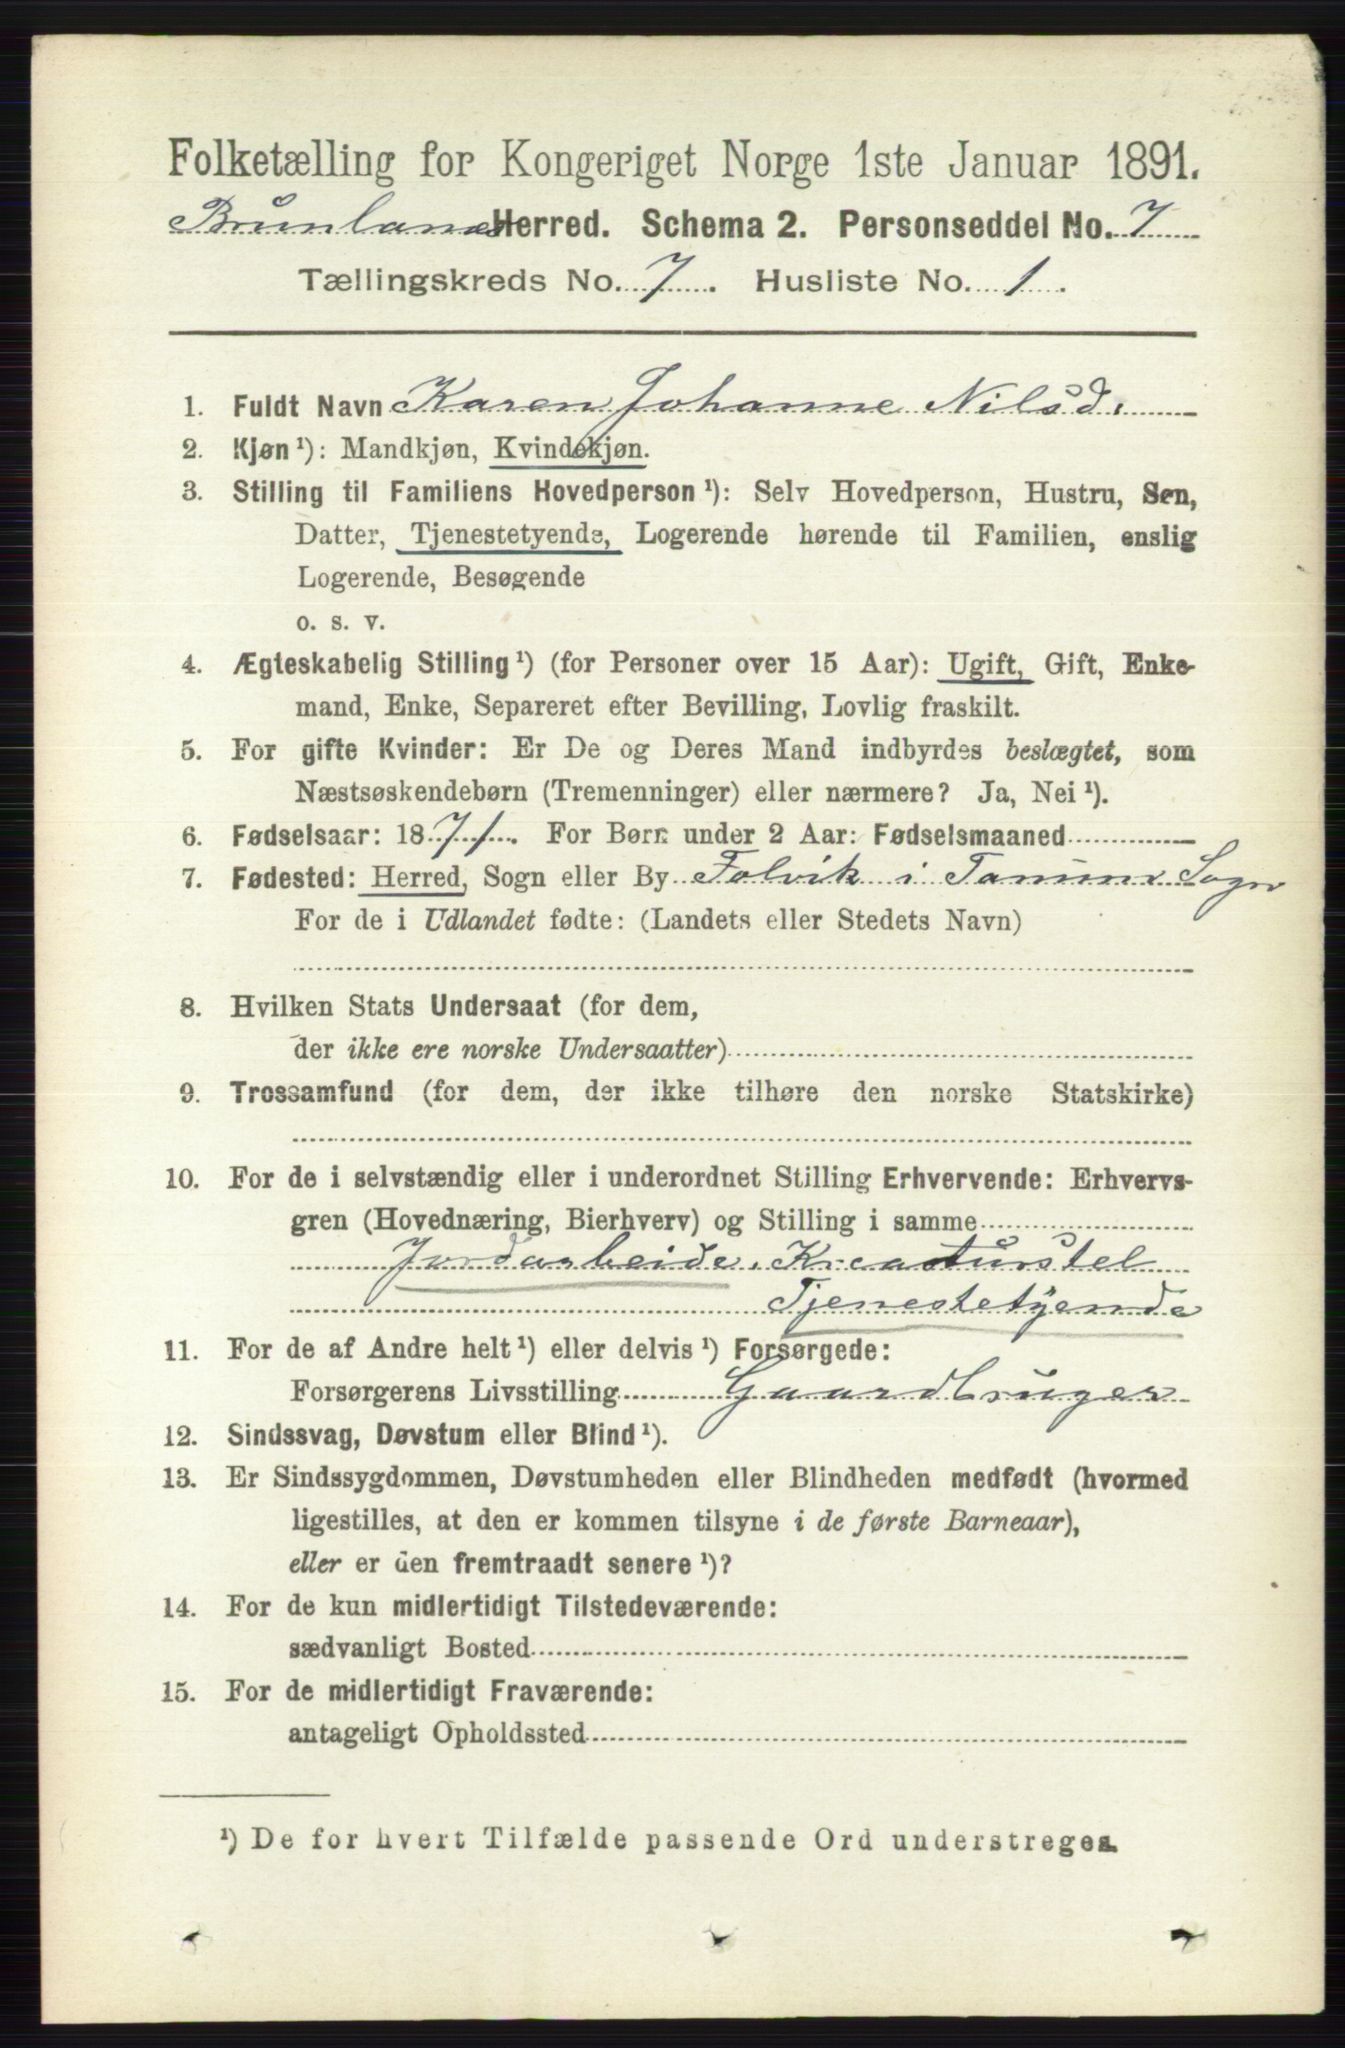 Folketælling for Kongeriget Norge 1ste Januar 1891.
Brunlanes Herred. Schema 2. Personseddel No. 7
Tællingskreds No. 7. Husliste No. 1.
1. Fuldt Navn Karen Johanne Nilsd.
2. Kjøn ¹): Mandkjøn, Kvindekjøn.
3. Stilling til Familiens Hovedperson ¹): Selv Hovedperson, Hustru, Søn,
Datter, Tjenestetyende, Logerende hørende til Familien, enslig
Logerende, Besøgende
o. s. v.
4. Ægteskabelig Stilling ¹) (for Personer over 15 Aar): Ugift, Gift, Enke-
mand, Enke, Separeret efter Bevilling, Lovlig fraskilt.
5. For gifte Kvinder: Er De og Deres Mand indbyrdes beslægtet, som
Næstsøskendebørn (Tremenninger) eller nærmere? Ja, Nei ¹).
6. Fødselsaar: 1871. For Børn under 2 Aar: Fødselsmaaned
7. Fødested: Herred, Sogn eller By Folvik i Tanum Sogn
For de i Udlandet fødte: (Landets eller Stedets Navn)
8. Hvilken Stats Undersaat (for dem,
der ikke ere norske Undersaatter)
9. Trossamfund (for dem, der ikke tilhøre den norske Statskirke)
10. For de i selvstændig eller i underordnet Stilling Erhvervende: Erhvervs-
gren (Hovednæring, Bierhverv) og Stilling i samme
Jordarbeide, Kreaturstel
Tjenestetyende
11. For de af Andre helt ¹) eller delvis ¹) Forsørgede:
Forsørgerens Livsstilling Gaardbruger
12. Sindssvag, Døvstum eller Blind ¹).
13. Er Sindssygdommen, Døvstumheden eller Blindheden medfødt (hvormed
ligestilles, at den er kommen tilsyne i de første Barneaar),
eller er den fremtraadt senere ¹)?
14. For de kun midlertidigt Tilstedeværende:
sædvanligt Bosted
15. For de midlertidigt Fraværende:
antageligt Opholdssted
¹) De for hvert Tilfælde passende Ord understreges.